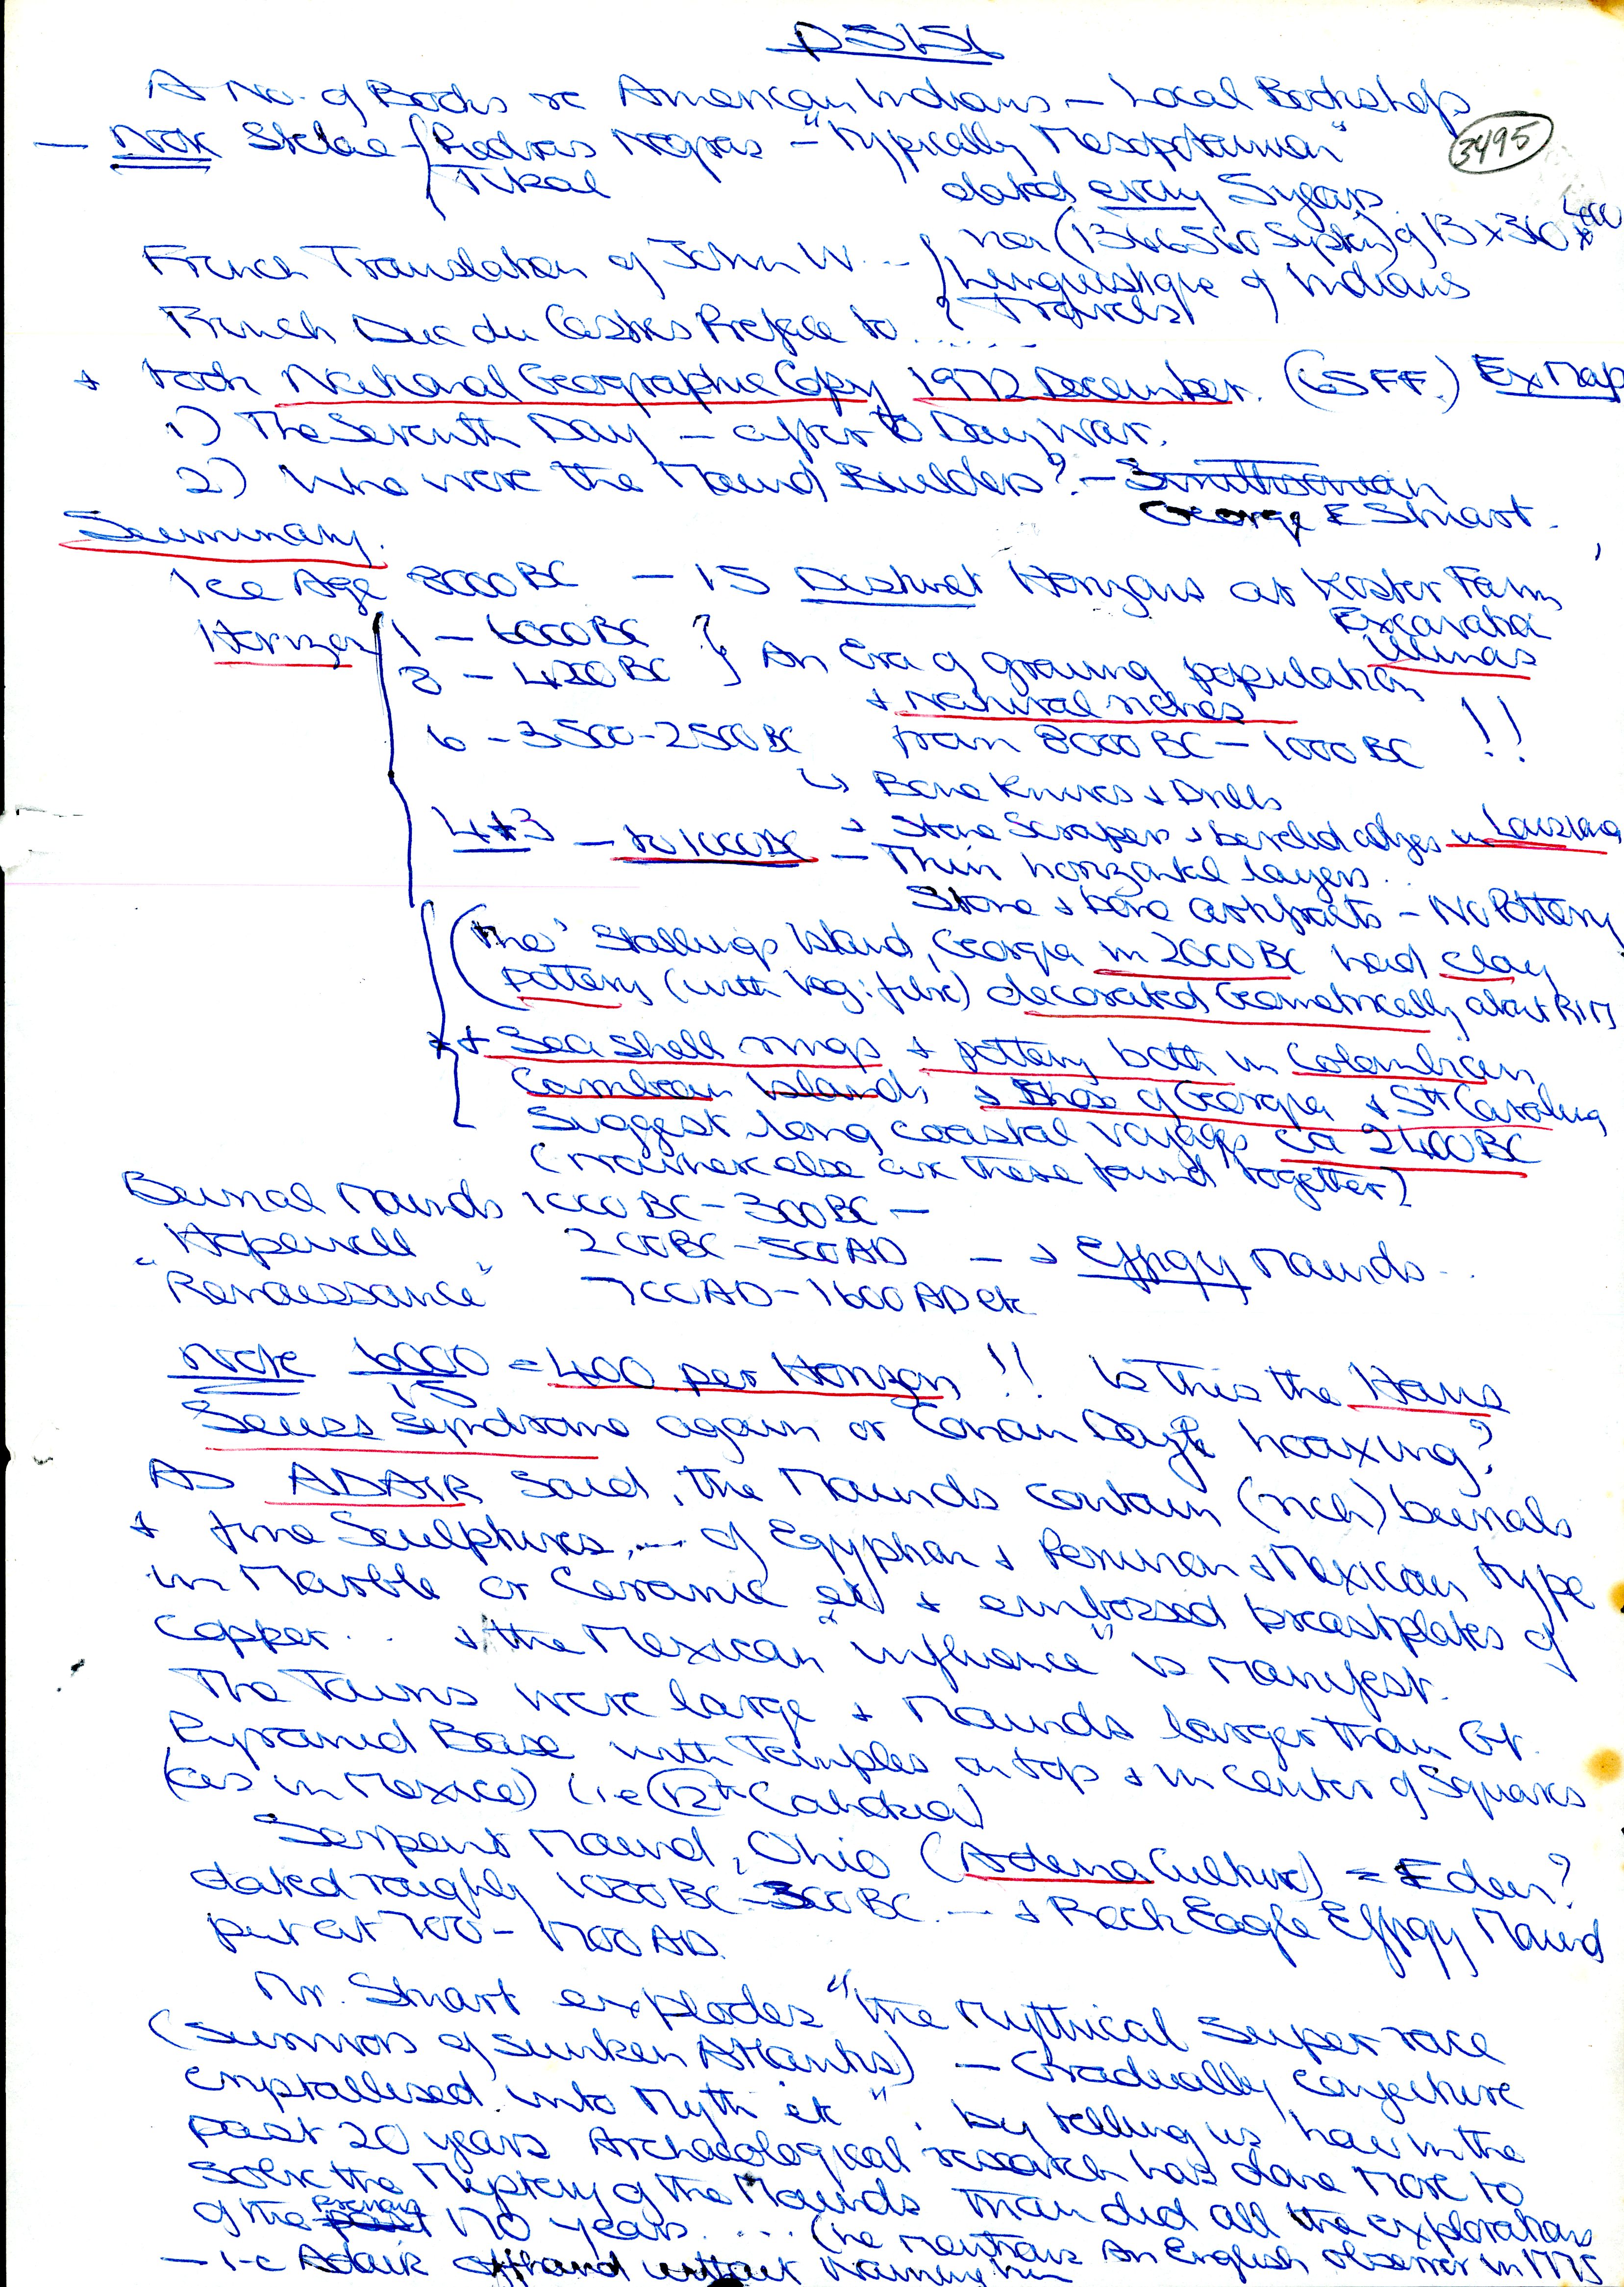 D5151
A No. of Books re American Indians – Local Bookshops
3495
— Note Stelae – { Piedras Negras – "Typically Mesopotamian"
Tikal dated every 5 years
ner (1366560 System) of 13 x 360 x
French Translation of John W. – { Linguistique of Indians
French Duc du Castries Preface to ..... { Travels
+ took National Geographic Copy 1972 December. (65FF.) Ex Map
1) The Seventh Day – after 6 Day War.
2) Who were the Mound Builders? – Smithsonian
George E Stuart.
Summary.
Ice Age 8000 BC – 15 Distinct Horizons at Koster Farm
Excavated
Illinois
Horizon { 1 – 6000 BC } An Era of growing population
8 – 4200 BC } + Natural riches !!
6 – 3500-2500 BC from 8000 BC – 1000 BC
↳ Bone Knives + Drills
4+3 – to 1000 BC + Stone Scrapers + beveled edges in Louisiana
– Thin horizontal layers..
Stone + bone artifacts – No Pottery
(The Stallings Island, Georgia in 2000 BC had clay
pottery (with Veg: fibre) decorated Geometrically about Rim
+ + Sea shell rings + pottery both in Colombian
Carribean Islands + those of Georgia + Sth Carolina
Suggest long coastal voyages ca 2400 BC
(nowhere else are these found together)
Burial Mounds 1000 BC – 300 BC –
Hopewell 200 BC – 500 AD – + Effigy Mounds..
"Renaissance" 700 AD – 1600 AD etc
Note 6000/15 = 400 per Horizon !! Is This the Hans
Seuss Syndrome again or Conan Doyle hoaxing?
As ADAIR Said, the Mounds contain (rich) burials
+ fine Sculptures ... of Egyptian + Peruvian + Mexican type
in Marble or Ceramic etc + embossed breastplates of
Copper.. + the Mexican "influence" is Manifest.
The Towns were large + Mounds larger than Gt.
Pyramid Base with Temples on top + in Center of Squares
(as in Mexico) (ie 12th Cahokia)
Serpent Mound, Ohio (Adena Culture) = Eden?
dated roughly 1000 BC – 300 BC. – + Rock Eagle Effigy Mound
put at 700 – 1700 AD.
Mr. Stuart explodes "the Mythical Super race
(Survivors of sunken Atlantis) – Gradually Conjecture
Crystallised into Myth etc", by telling us how in the
past 20 years Archaeological research has done More to
Solve the Mystery of the Mounds than did all the explorations
of the previous 170 years.... (he mentions An English observer in 1775
— i-e Adair offhand without naming him